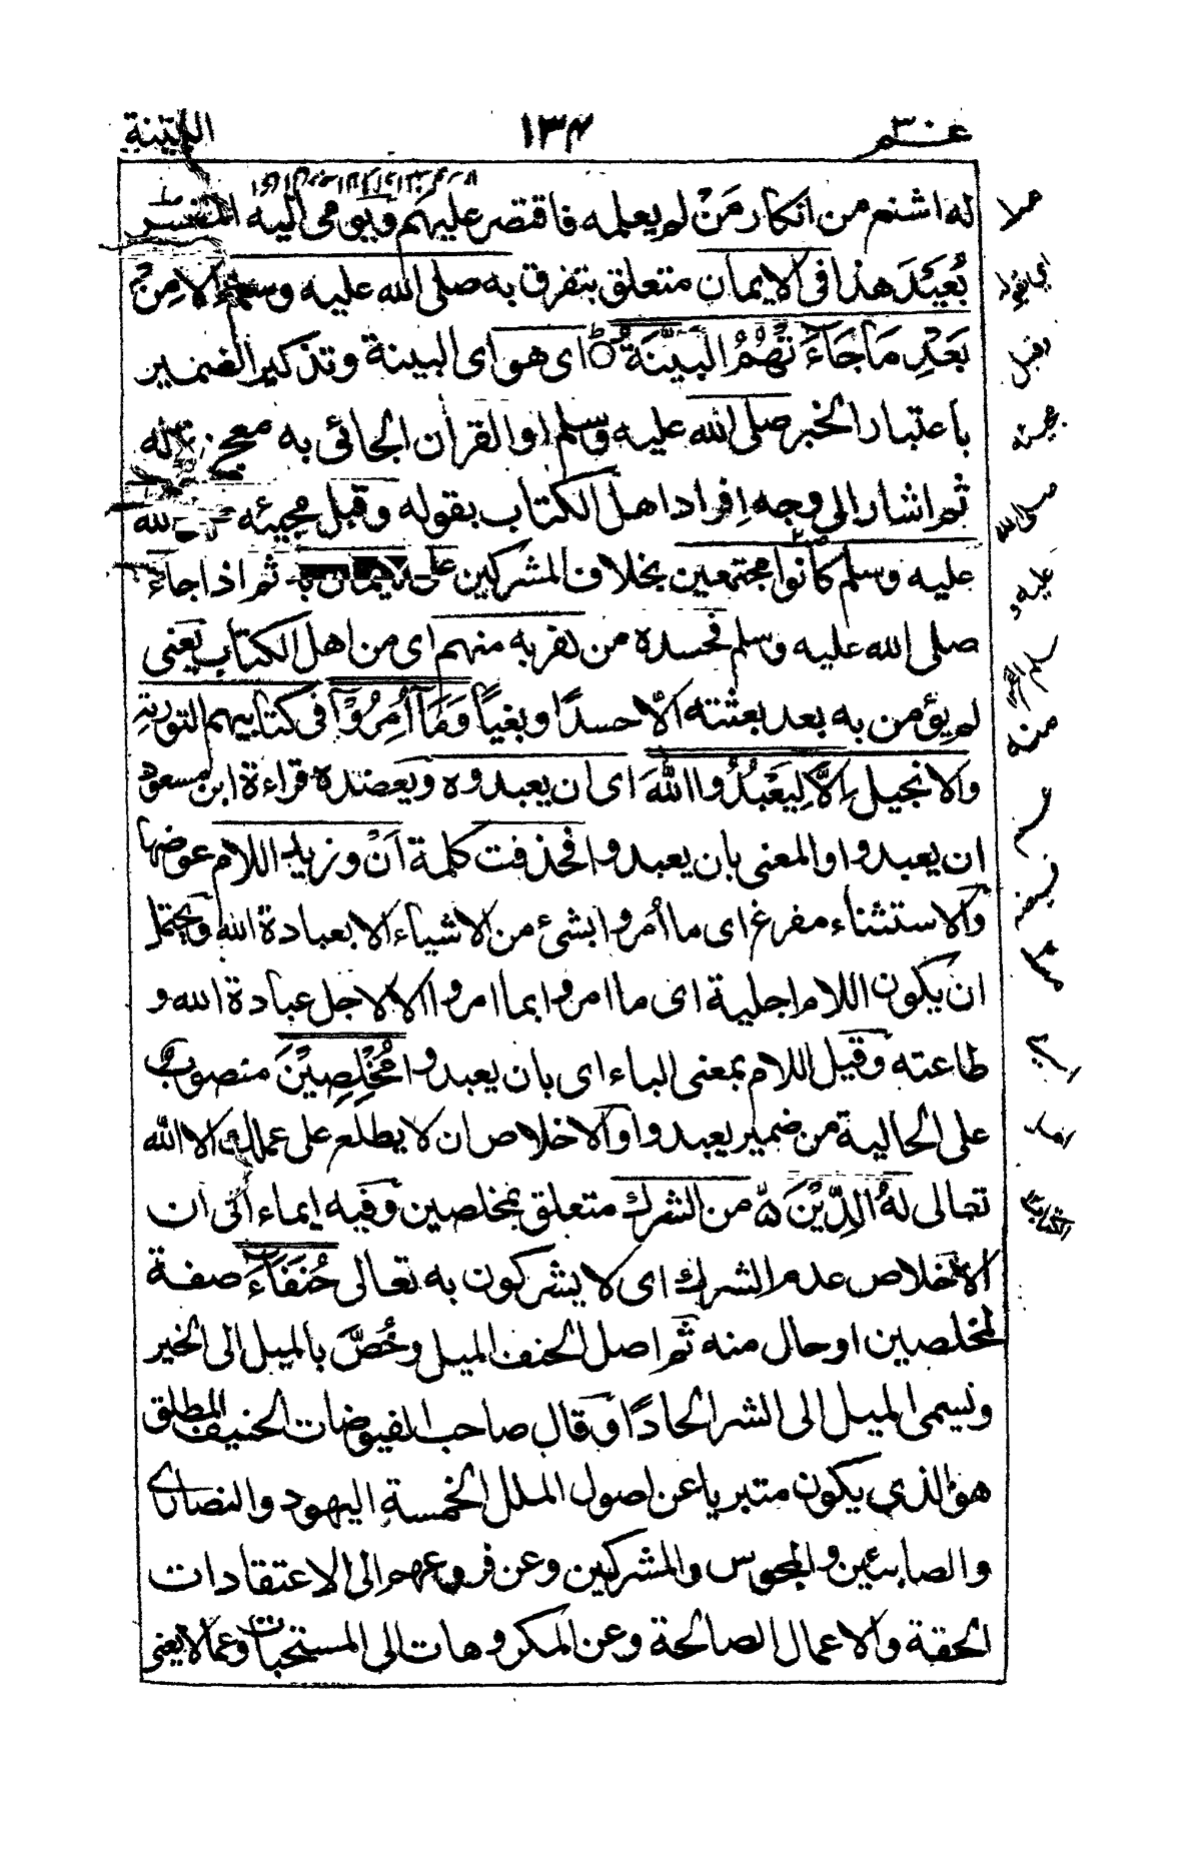 عـم ۱۳۴ البينة
له اشنع من انكار مَنْ لم يعلمه فاقتصر عليهم ويومى اليه المفسر
بُعَيْدَ هذا فى الايمان متعلق بتفرق به صلى الله عليه وسلم اِلَّا مِنْۢ
بَعْدِ مَا جَآءَتْهُمُ الْبَيِّنَةُ اى هو اى البينة وتذكير الضمير
باعتبار الخبر صلى الله عليه وسلم او القرآن الجائى به معجزة له
ثم اشار الى وجه افراد اهل الكتاب بقوله وقبل مجيئه صلى الله
عليه وسلم كانوا مجتمعين بخلاف المشركين على الايمان به ثم اذا جاء
صلى الله عليه وسلم فحسده من كفر به منهم اى من اهل الكتاب يعنى
لم يؤمن به بعد بعثته الا حسدًا وبغيًا وَمَآ اُمِرُوْٓا فى كتابيهم التورية
والانجيل اِلَّا لِيَعْبُدُوا اللّٰهَ اى ان يعبدوه ويعضده قراءة ابن مسعود
ان يعبدوا والمعنى بان يعبدوا فحذفت كلمة اَنْ وزيد اللام عوضها
والاستثناء مفرغ اى ما اُمروا بشئ من الاشياء الا بعبادة الله ويحتمل
ان يكون اللام اجلية اى ما امروا بما امروا الا لاجل عبادة الله و
طاعته وقيل اللام بمعنى الباء اى بان يعبدوا مُخْلِصِيْنَ منصوب
على الحالية من ضمير يعبدوا والاخلاص ان لا يطلع على عملك الا الله
تعالى لَهُ الدِّيْنَ من الشرك متعلق بمخلصين وفيه ايماء الى ان
الاخلاص عدم الشرك اى لا يشركون به تعالى حُنَفَآءَ صفة
لمخلصين او حال منه ثم اصل الحنف الميل وخُصَّ بالميل الى الخير
ونسمى الميل الى الشر الحادًا وقال صاحب الفيوضات الحنيف المطلق
هو الذي يكون متبريا عن اصول الملل الخمسة اليهود والنصارى
والصابئين والمجوس والمشركين وعن فروعهم الى الاعتقادات
الحقة والاعمال الصالحة وعن المكروهات الى المستحبات وعما لا يعنى
صلى الله
عليه و
سلم
منه